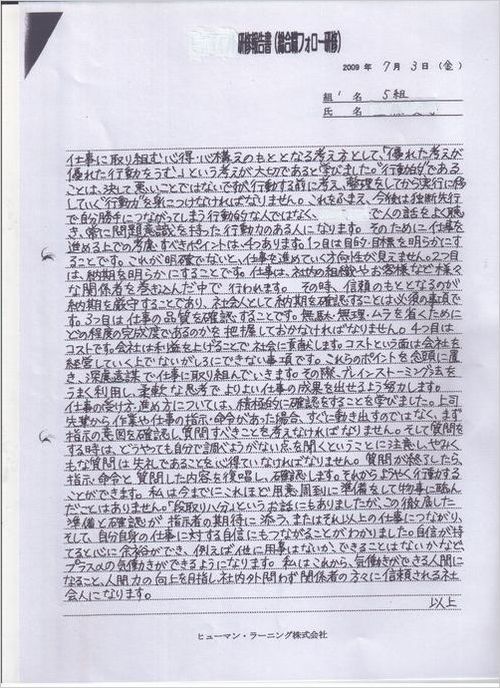 研修報告書(総合職フォロー研修)
2009 年 7 月 3 日 (金)
組 名 5組
氏 名
仕事に取り組む心得・心構えのもととなる考え方として、「優れた考えが
優れた行動をうむ」という考えが大切であると学びました。"行動的"である
ことは、決して悪いことではないですが、行動する前に考え、整理をしてから実行に移
していく"行動力"を身につけなければなりません。これをふまえ、今後は独断先行
で自分勝手につながってしまう行動的な人ではなく、 で人の話をよく聴
き、常に問題意識を持った行動力のある人になります。そのために仕事を
進める上での考慮すべきポイントは、4つあります。1つ目は目的・目標を明らかにす
ることです。これが明確でないと、仕事を進めていく方向性が見えません。2つ目
は、納期を明らかにすることです。仕事は、社内の組織やお客様など様々
な関係者を巻き込んだ中で行われます。その時、信頼のもととなるのが
納期を厳守することであり、社会人として納期を確認することは必須の事項で
す。3つ目は仕事の品質を確認することです。無駄・無理・ムラを省くために
どの程度の完成度であるのかを把握しておかなければなりません。4つ目は
コストです。会社は利益を上げることで社会に貢献します。コストという面は会社を
経営していく上でないがしろにできない事項です。これらのポイントを念頭に置
き、深慮遠謀で仕事に取り組んでいきます。その際、ブレインストーミング法を
うまく利用し、柔軟な思考でよりよい仕事の成果を出せるよう努力します。
仕事の受け方・進め方については、積極的に確認をすることを学びました。上司
先輩から作業や仕事の指示・命令があった場合、すぐに動き出すのではなく、まず
指示の意図を確認し、質問すべきことを考えなければなりません。そして質問を
する時は、どうやっても自分で調べようがない点を聞くということに注意し、やみく
もな質問は失礼であることを心得ていなければなりません。質問が終了したら、
指示・命令と質問した内容を復唱し、確認します。それからようやく行動する
ことができます。私は今までにこれほど用意周到に準備をして物事に臨ん
だことはありません。「段取り八分」というお話にもありましたが、この徹底した
準備と確認が指示者の期待に添う、またはそれ以上の仕事につながり、
そして、自分自身の仕事に対する自信にもつながることがわかりました。自信が持
てると心に余裕ができ、例えば「他に用事はないか、できることはないか」など、
プラスαの気働きができるようになります。私はこれから、気働きができる人間に
なること、人間力の向上を目指し、社内外問わず関係者の方々に信頼される社
会人になります。
以上
ヒューマン・ラーニング株式会社